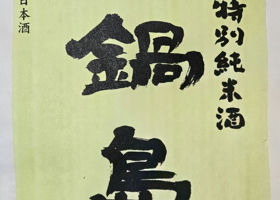 特別純米酒
鍋島
日本酒